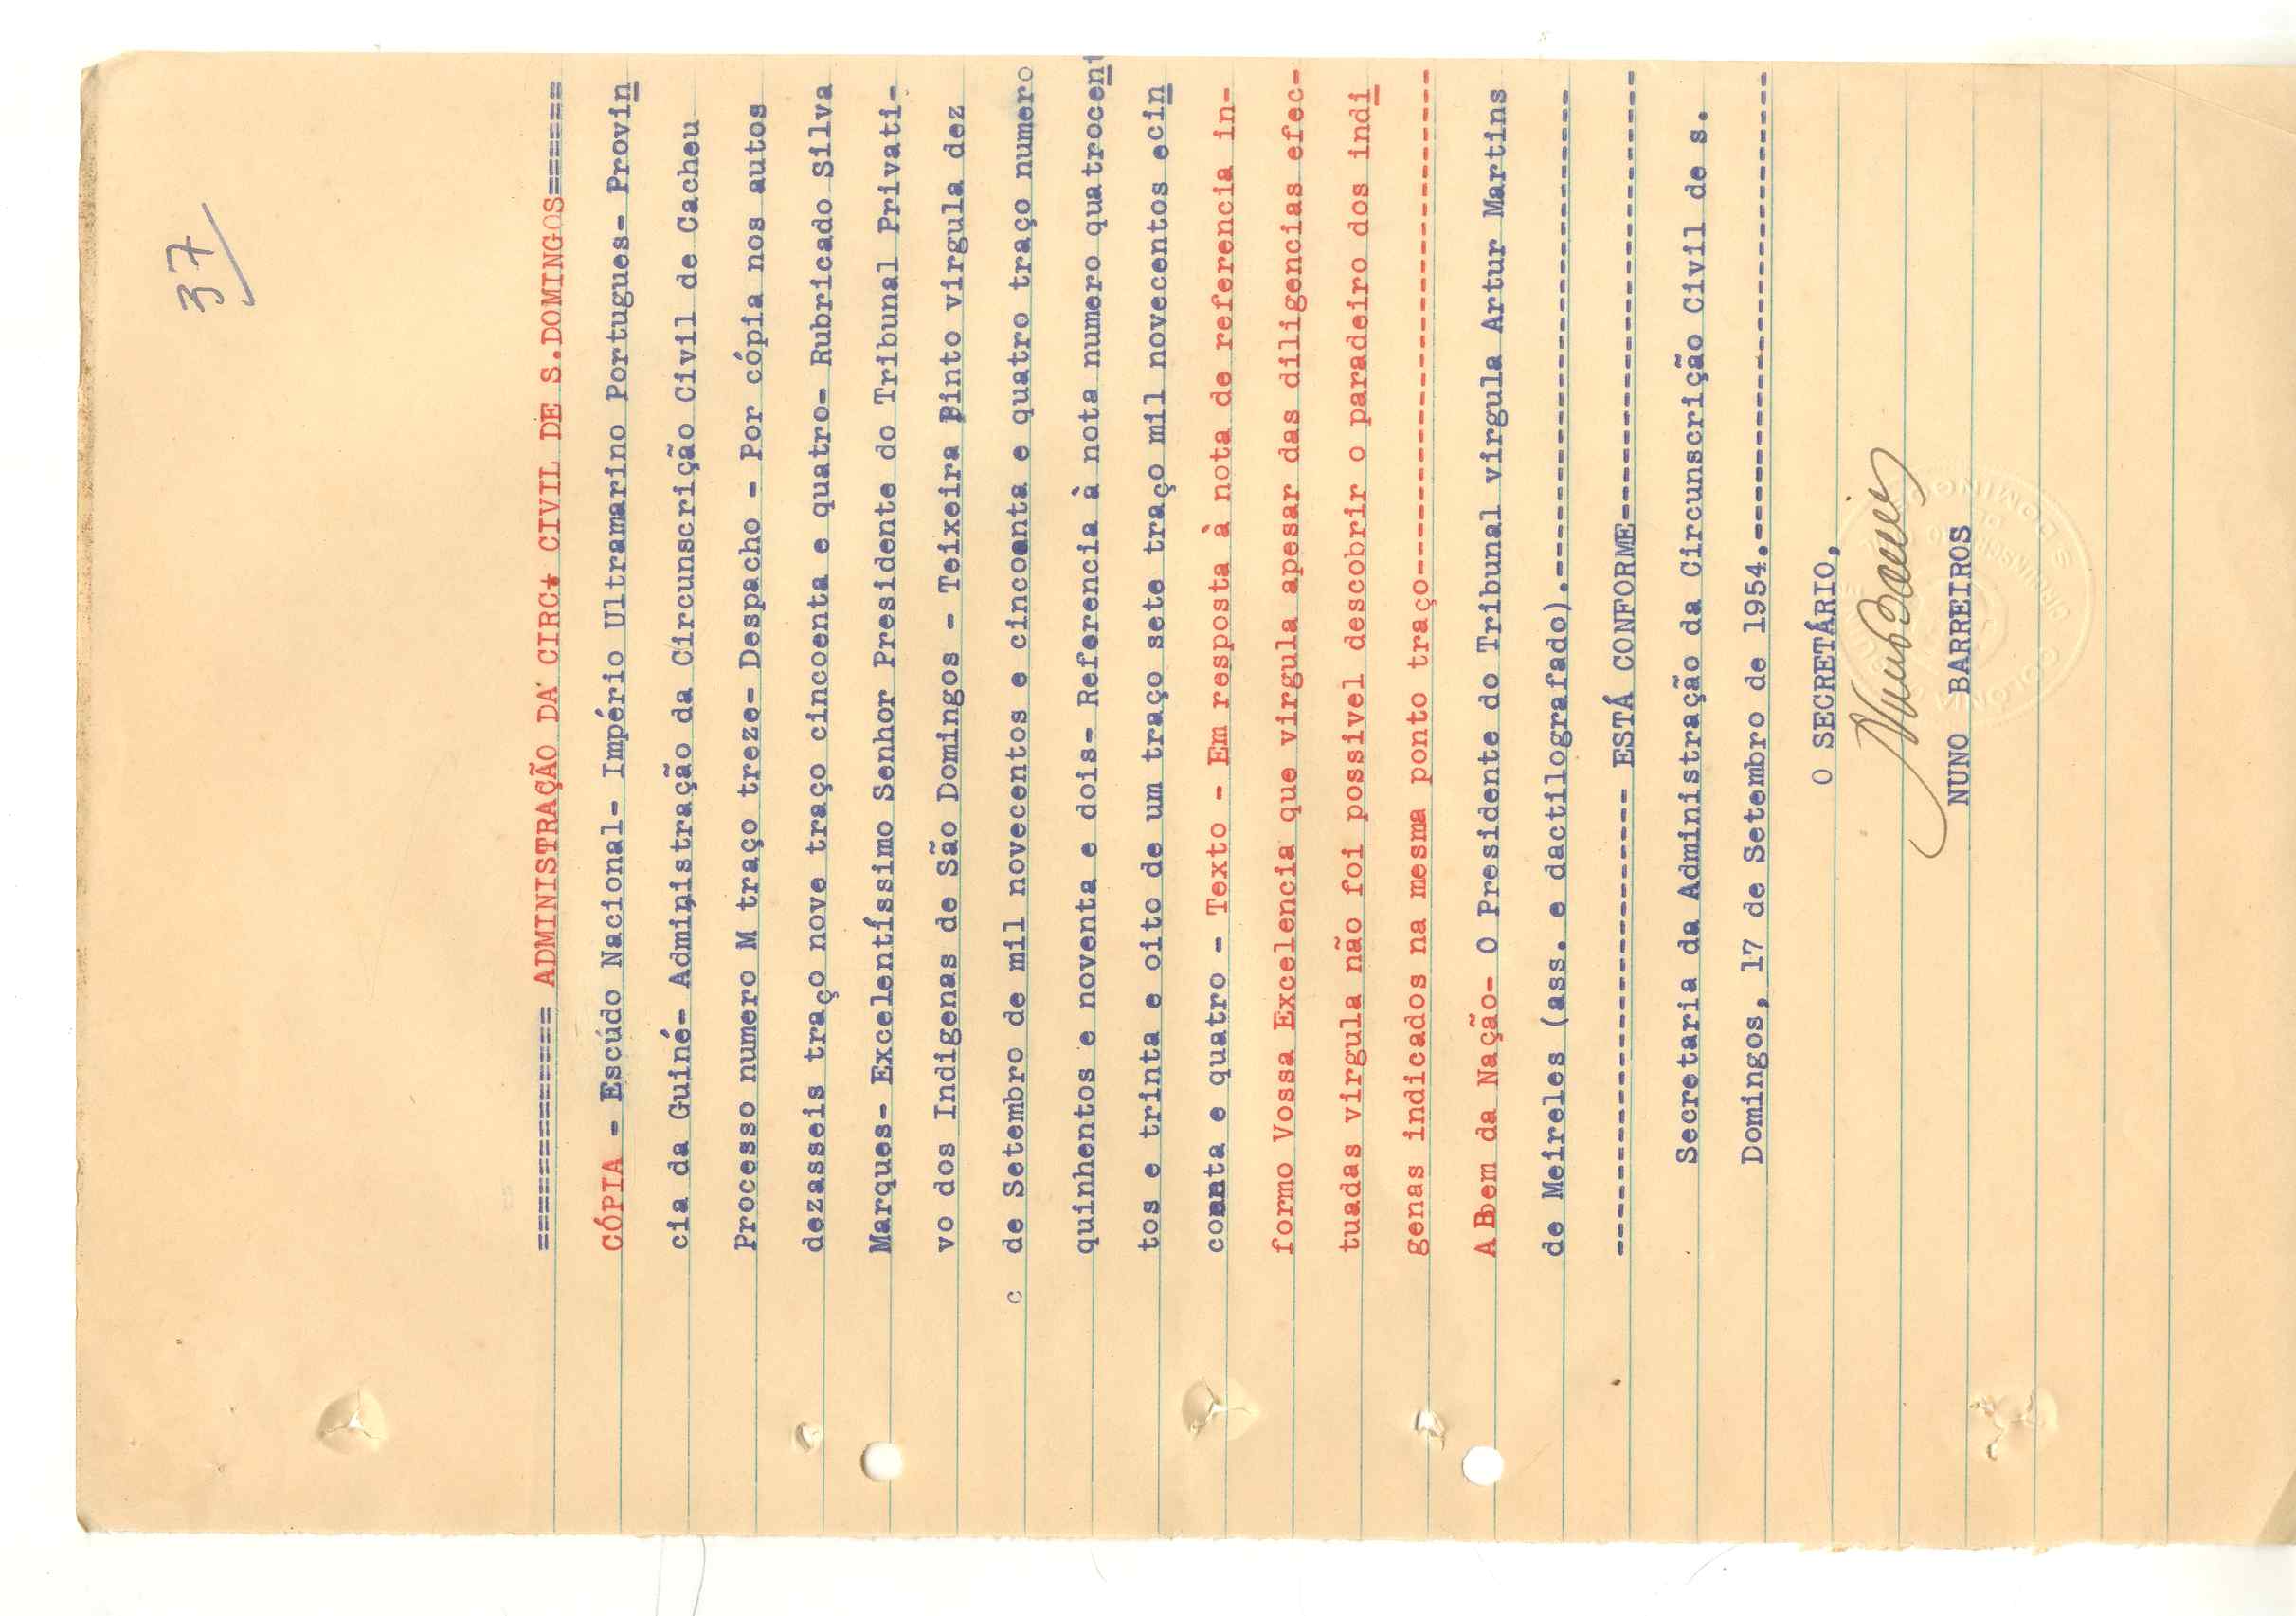 37
============== ADMINISTRAÇÃO DA CIRC+ CIVIL DE S.DOMINGOS======
CÓPIA - Escúdo Nacional- Império Ultramarino Portugues- Provin
cia da Guiné- Administração da Circunscrição Civil de Cacheu
Processo numero M traço treze- Despacho - Por cópia nos autos
dezasseis traço nove traço cincoenta e quatro- Rubricado Silva
Marques- Excelentíssimo Senhor Presidente do Tribunal Privati-
vo dos Indigenas de São Domingos - Teixeira Pinto virgula dez
c de Setembro de mil novecentos e cincoenta e quatro traço numero
quinhentos e noventa e dois- Referencia à nota numero quatrocent
tos e trinta e oito de um traço sete traço mil novecentos ecin
coenta e quatro - Texto - Em resposta à nota de referencia in-
formo Vossa Excelencia que virgula apesar das diligencias efec-
tuadas virgula não foi possivel descobrir o paradeiro dos indi
genas indicados na mesma ponto traço-------------------------------
A Bem da Nação- O Presidente do Tribunal virgula Artur Martins
de Meireles (ass. e dactilografado).------------------------------
----------------------------- ESTÁ CONFORME-----------------------------
Secretaria da Administração da Circunscrição Civil de s.
Domingos, 17 de Setembro de 1954.-----------------------------
O SECRETÁRIO,
Nuno Barreiros
NUNO BARREIROS